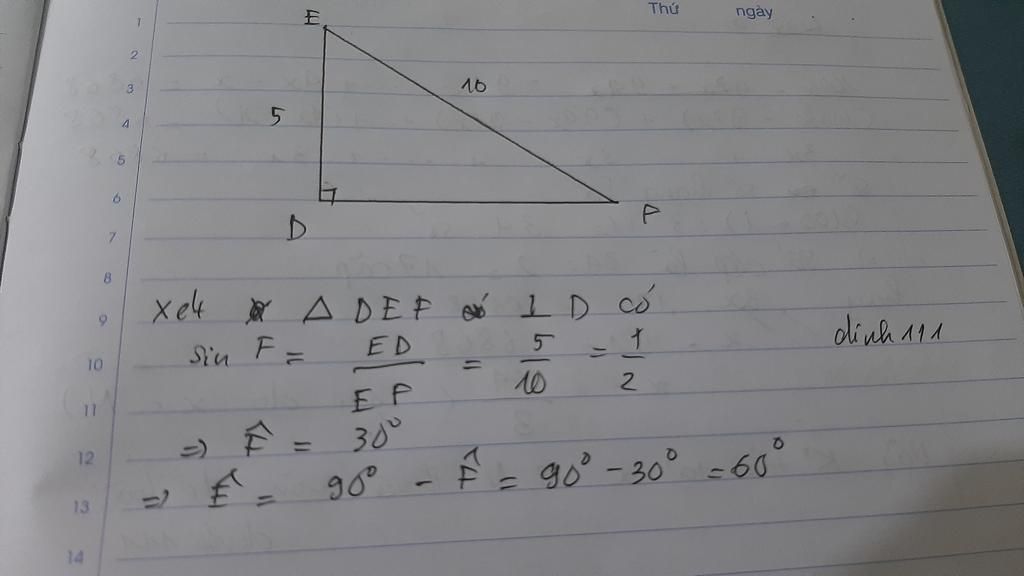 Thứ ngày
1
E
2
3
10
4
5
5
6
D F
7
8
9
xét Δ DEF ⊥ D có
10
sin F = ED/EF = 5/10 = 1/2
dinh111
11
12
=> F̂ = 30°
13
=> Ê = 90° - F̂ = 90° - 30° = 60°
14